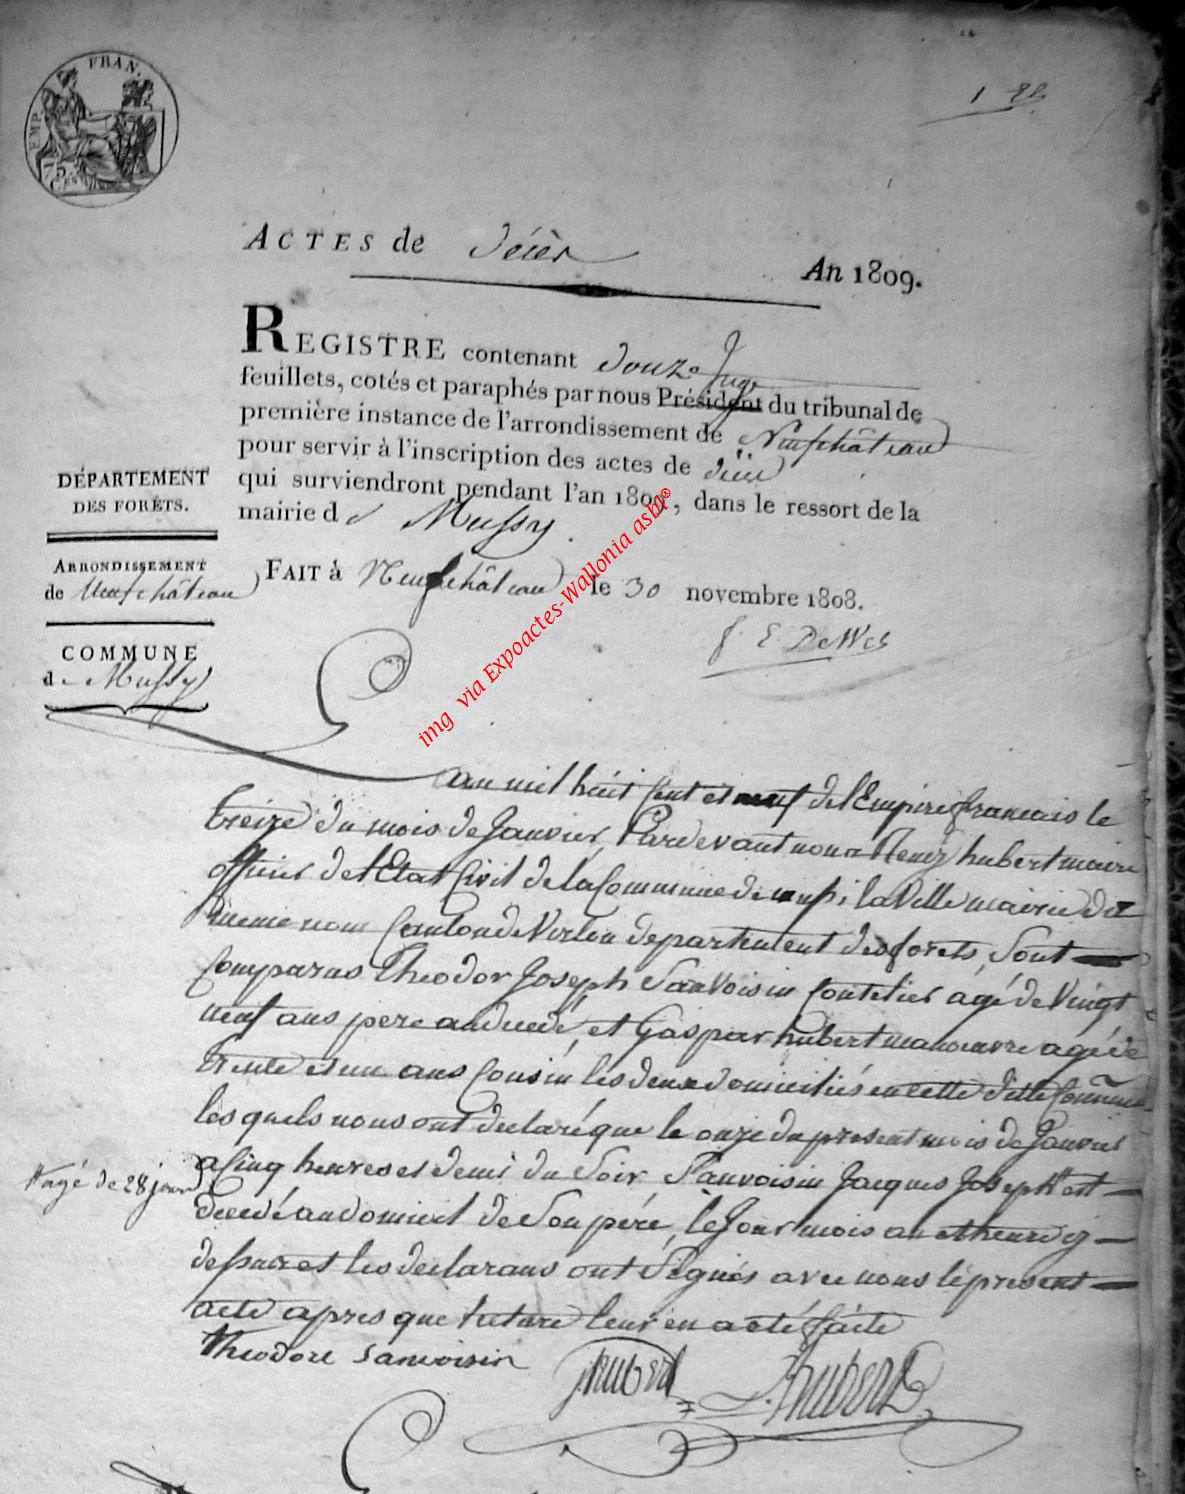 EMP. FRAN.
75.
CENTIMES
1
ACTES de décès
An 1809.
REGISTRE contenant douze
feuillets, cotés et paraphés par nous Juge Président du tribunal de
première instance de l'arrondissement de Neufchâteau
pour servir à l'inscription des actes de décès
qui surviendront pendant l'an 1809, dans le ressort de la
mairie de Mussy.
DÉPARTEMENT
DES FORÊTS.
ARRONDISSEMENT
de Neufchâteau
COMMUNE
de Mussy
FAIT à Neufchâteau le 30 novembre 1808.
f. E. DeWes
img via Expoactes-Wallonia asbl®
an mil huit cent et neuf de l'Empire francais le
treize du mois de Janvier, Pardevant nous hubert maire
officier de l'Etat Civil de la Commune de mussi la Ville mairie du
meme nom Canton de Virton departement des forets, Sont
Comparus Theodor Joseph Sanvoisin Coutelier agé de Vingt
neuf ans pere au decedé, et Gaspar hubert manoeuvre agé de
trente et un ans Cousin les deux domiciliés en cette ditte Commune
les quels nous ont declaré que le onze du present mois de Janvier
a Cinq heures et demi du Soir Sanvoisin Jacques Joseph # est
# agé de 28 jours
decedé au domicil de Son pére, le Jour mois an et heure cy
dessus et les declarans ont Signés avec nous le présent
acte apres que lecture leur en a été faite
Theodore Sanvoisin
hubert
hubert